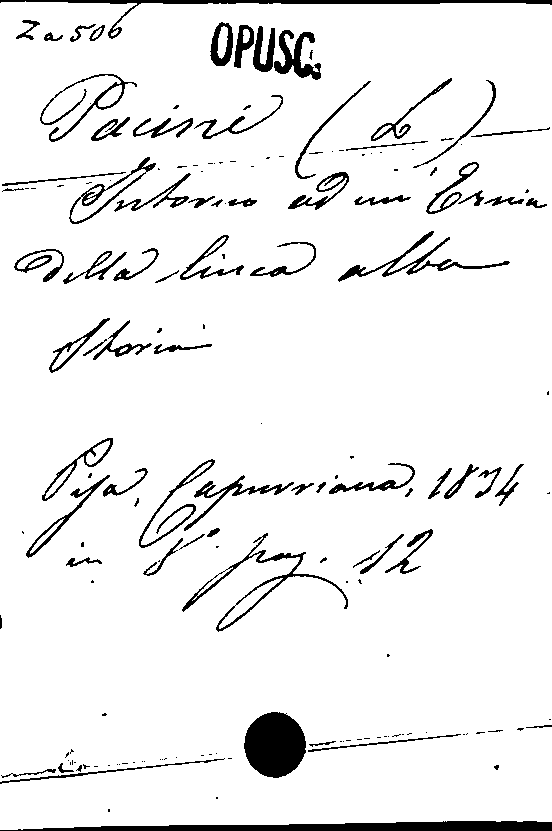 Za 506
OPUSC.
Pacini (L)
Intorno ad un' Ernia
della linea alba
Storia
Pisa, Capurriana, 1834
in 8° pag. 12